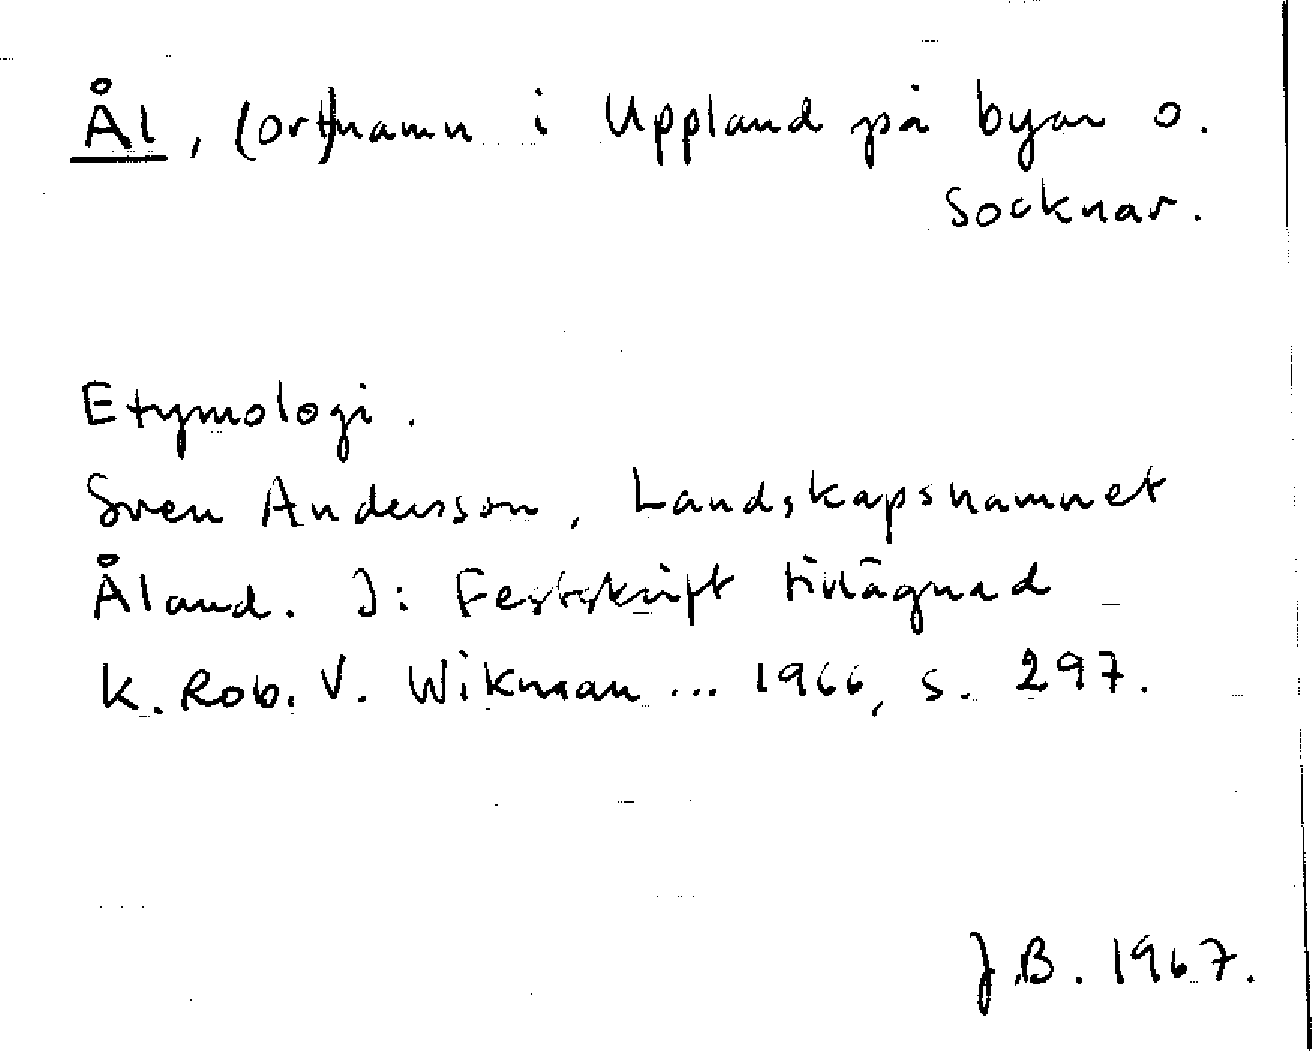 Ål, (ort)namn i Uppland på byar o.
socknar.
Etymologi.
Sven Andersson, Landskapsnamnet
Åland. I: Festskrift tillägnad
K. Rob. V. Wikman ... 1966, s. 297.
J.B. 1967.